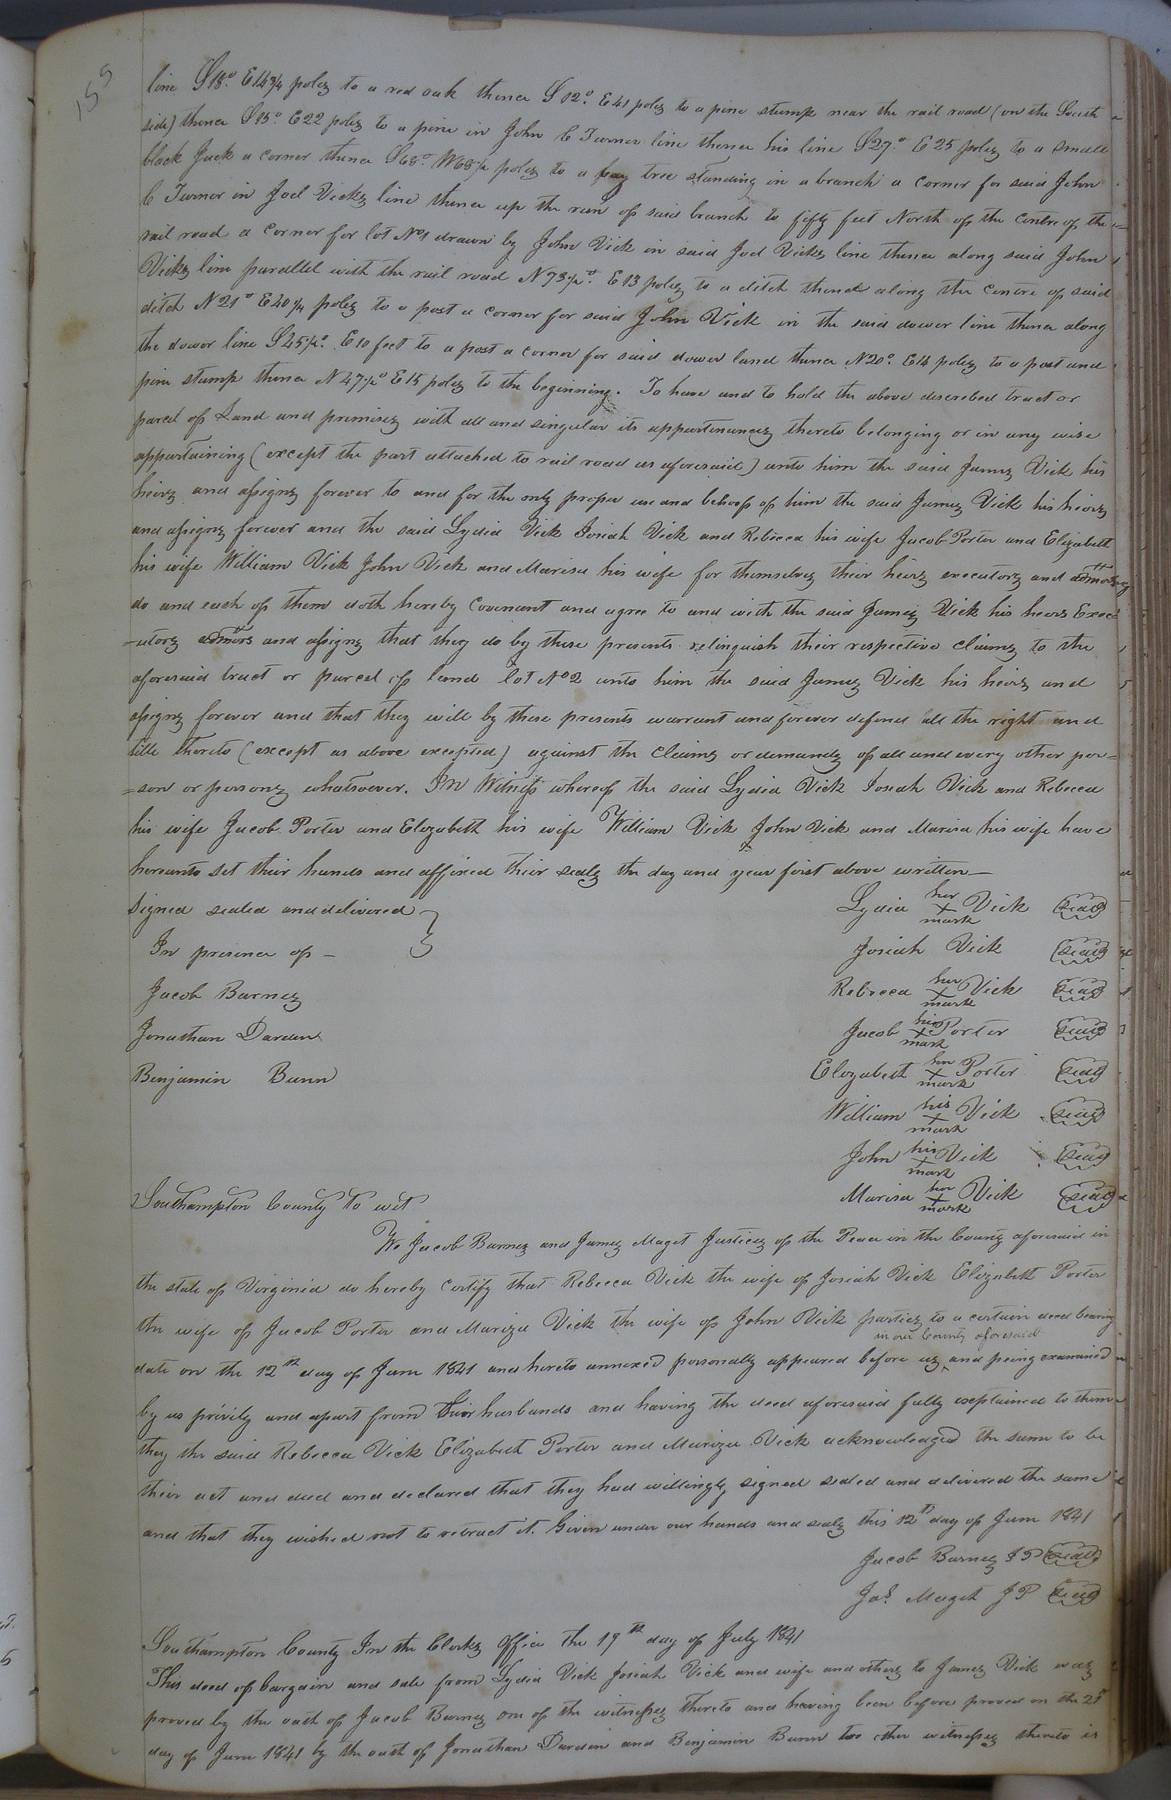 155
line S18.° E14¾ poles to a red oak thence S12.° E41 poles to a pine stump near the rail road (on the South
side) thence S15.° E22 poles to a pine in John C Turner line thence his line S27.° E25 poles to a small
black Jack a corner thence S68.° W68½ poles to a bay tree standing in a branch a corner for said John
C Turner in Joel Vicks line thence up the run of said branch to fifty feet North of the centre of the
rail road a corner for lot No1 drawn by John Vick in said Joel Vicks line thence along said John
Vicks line parallel with the rail road N73½.° E13 poles to a ditch thence along the centre of said
ditch N21° E40¼ poles to a post a corner for said John Vick in the said dower line thence along
the dower line S45½.° E10 feet to a post a corner for said dower land thence N20.° E14 poles to a post and
pine stump thence N47½° E15 poles to the beginning. To have and to hold the above described tract or
parcel of Land and premises with all and singular its appurtenances thereto belonging or in any wise
appurtaining (except the part attached to rail road as aforesaid) unto him the said James Vick his
heirs and assigns forever to and for the only proper use and behoof of him the said James Vick his heirs
and assigns forever and the said Lydia Vick Josiah Vick and Rebecca his wife Jacob Porter and Elizabeth
his wife William Vick John Vick and Marisa his wife for themselves their heirs executors and admors
do and each of them doth hereby Covenant and agree to and with the said James Vick his heirs Exec
-utors admors and assigns that they do by these presents relinquish their respective claims to the
aforesaid tract or parcel of land lot No2 unto him the said James Vick his heirs and
assigns forever and that they will by these presents warrant and forever defend all the right and
title thereto (except as above excepted) against the claims or demands of all and every other per=
=son or persons whatsoever. In Witness whereof the said Lydia Vick Josiah Vick and Rebecca
his wife Jacob Porter and Elizabeth his wife William Vick John Vick and Marisa his wife have
hereunto set their hands and affixed their seals the day and year first above written—
Signed sealed and delivered } Lydia her X mark Vick Seal
In presence of – Josiah Vick Seal
Jacob Barnes Rebecca her X mark Vick Seal
Jonathan Darden Jacob his X mark Porter Seal
Benjamin Bunn Elizabeth her X mark Porter Seal
William his X mark Vick Seal
John his X mark Vick Seal
Marisa her X mark Vick Seal
Southampton County To wit
We Jacob Barnes and James Maget Justices of the Peace in the County aforesaid in
the state of Virginia do hereby certify that Rebecca Vick the wife of Josiah Vick Elizabeth Porter
the wife of Jacob Porter and Mariza Vick the wife of John Vick parties to a certain deed bearing
in our County aforesaid
date on the 12th day of June 1841 and hereto annexed personally appeared before us ^ and being examined
by us privily and apart from their husbands and having the deed aforesaid fully explained to them
they the said Rebecca Vick Elizabeth Porter and Mariza Vick acknowledged the same to be
their act and deed and declared that they had willingly signed sealed and delivered the same
and that they wished not to retract it. Given under our hands and seals this 12th day of June 1841
Jacob Barnes J P Seal
Jas. Maget J P Seal
Southampton County In the Clerks Office the 19th day of July 1841
This deed of bargain and sale from Lydia Vick Josiah Vick and wife and others to James Vick was
proved by the oath of Jacob Barnes one of the witnesses thereto and having been before proved on the 21st
day of June 1841 by the oath of Jonathan Darden and Benjamin Bunn two other witnesses thereto is